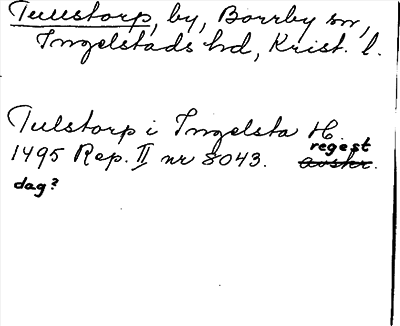 Tullstorp, by, Borrby sn,
Ingelstads hd, Krist. l.
Tulstorp i Ingelsta H.
regest
1495 Rep. II nr 8043. avskr.
dag?